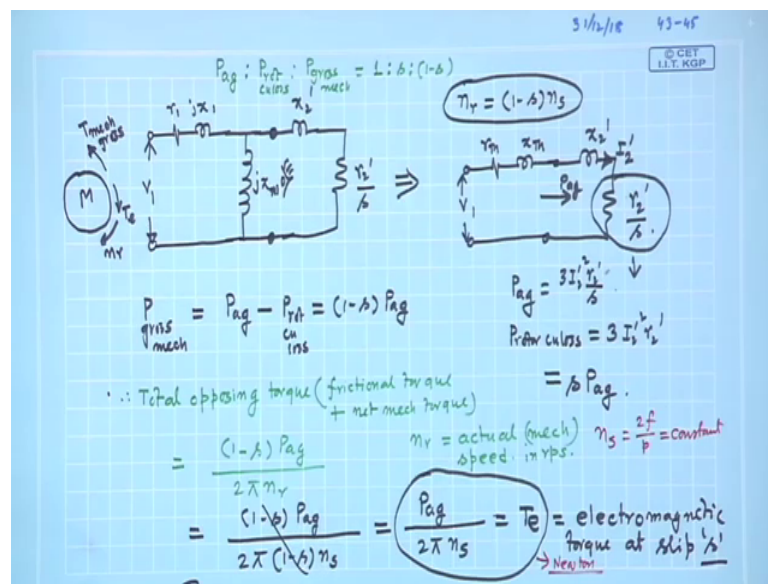 31/12/18 43-45
© CET
I.I.T. KGP
Pag : Prot culoss : Pgross mech = 1 : s : (1-s)
nr = (1-s) ns
Tmech gross
r1 jx1 x2'
M
Te
nr
V1
r2'/s
⇒
rTh xTh x2' I2'
Pag
V1
r2'/s
P gross mech = Pag - Prot cu loss = (1-s) Pag
Pag = 3I2'² r2'/s
Protor culoss = 3 I2'² r2'
= s Pag.
∴ Total opposing torque (frictional torque
+ net mech torque)
= (1-s) Pag / 2π nr
nr = actual (mech) speed in rps.
ns = 2f/p = constant
= (1-s) Pag / 2π (1-s) ns = Pag / 2π ns = Te = electromagnetic
torque at slip 's'
→ Newton